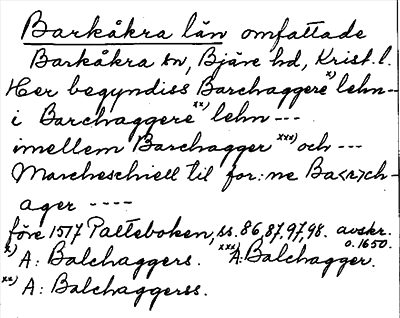 Barkåkra län omfattade
Barkåkra sn, Bjäre hd, Krist. l.
Her begyndiss Barchaggere x) lehn--
i Barchaggere xx) lehn ---
imellem Barchagger xxx) och ---
Marcheschiell til for:ne Ba<r>ch-
ager ----
före 1517 Palteboken, ss. 86, 87, 97, 98. avskr.
o. 1650.
x) A: Balchaggers. xxx) A: Balchagger.
xx) A: Balchaggerss.